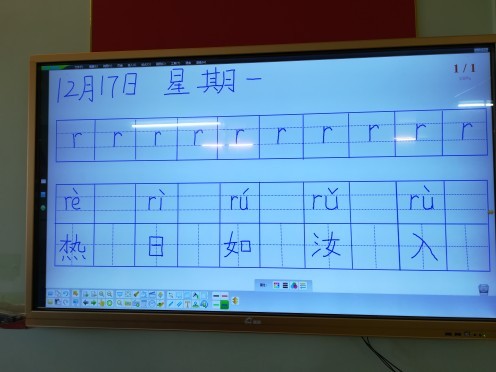 12月17日 星期一
1/1
r r r r r r r r r r r
rè rì rú rǔ rù
热 日 如 汝 入